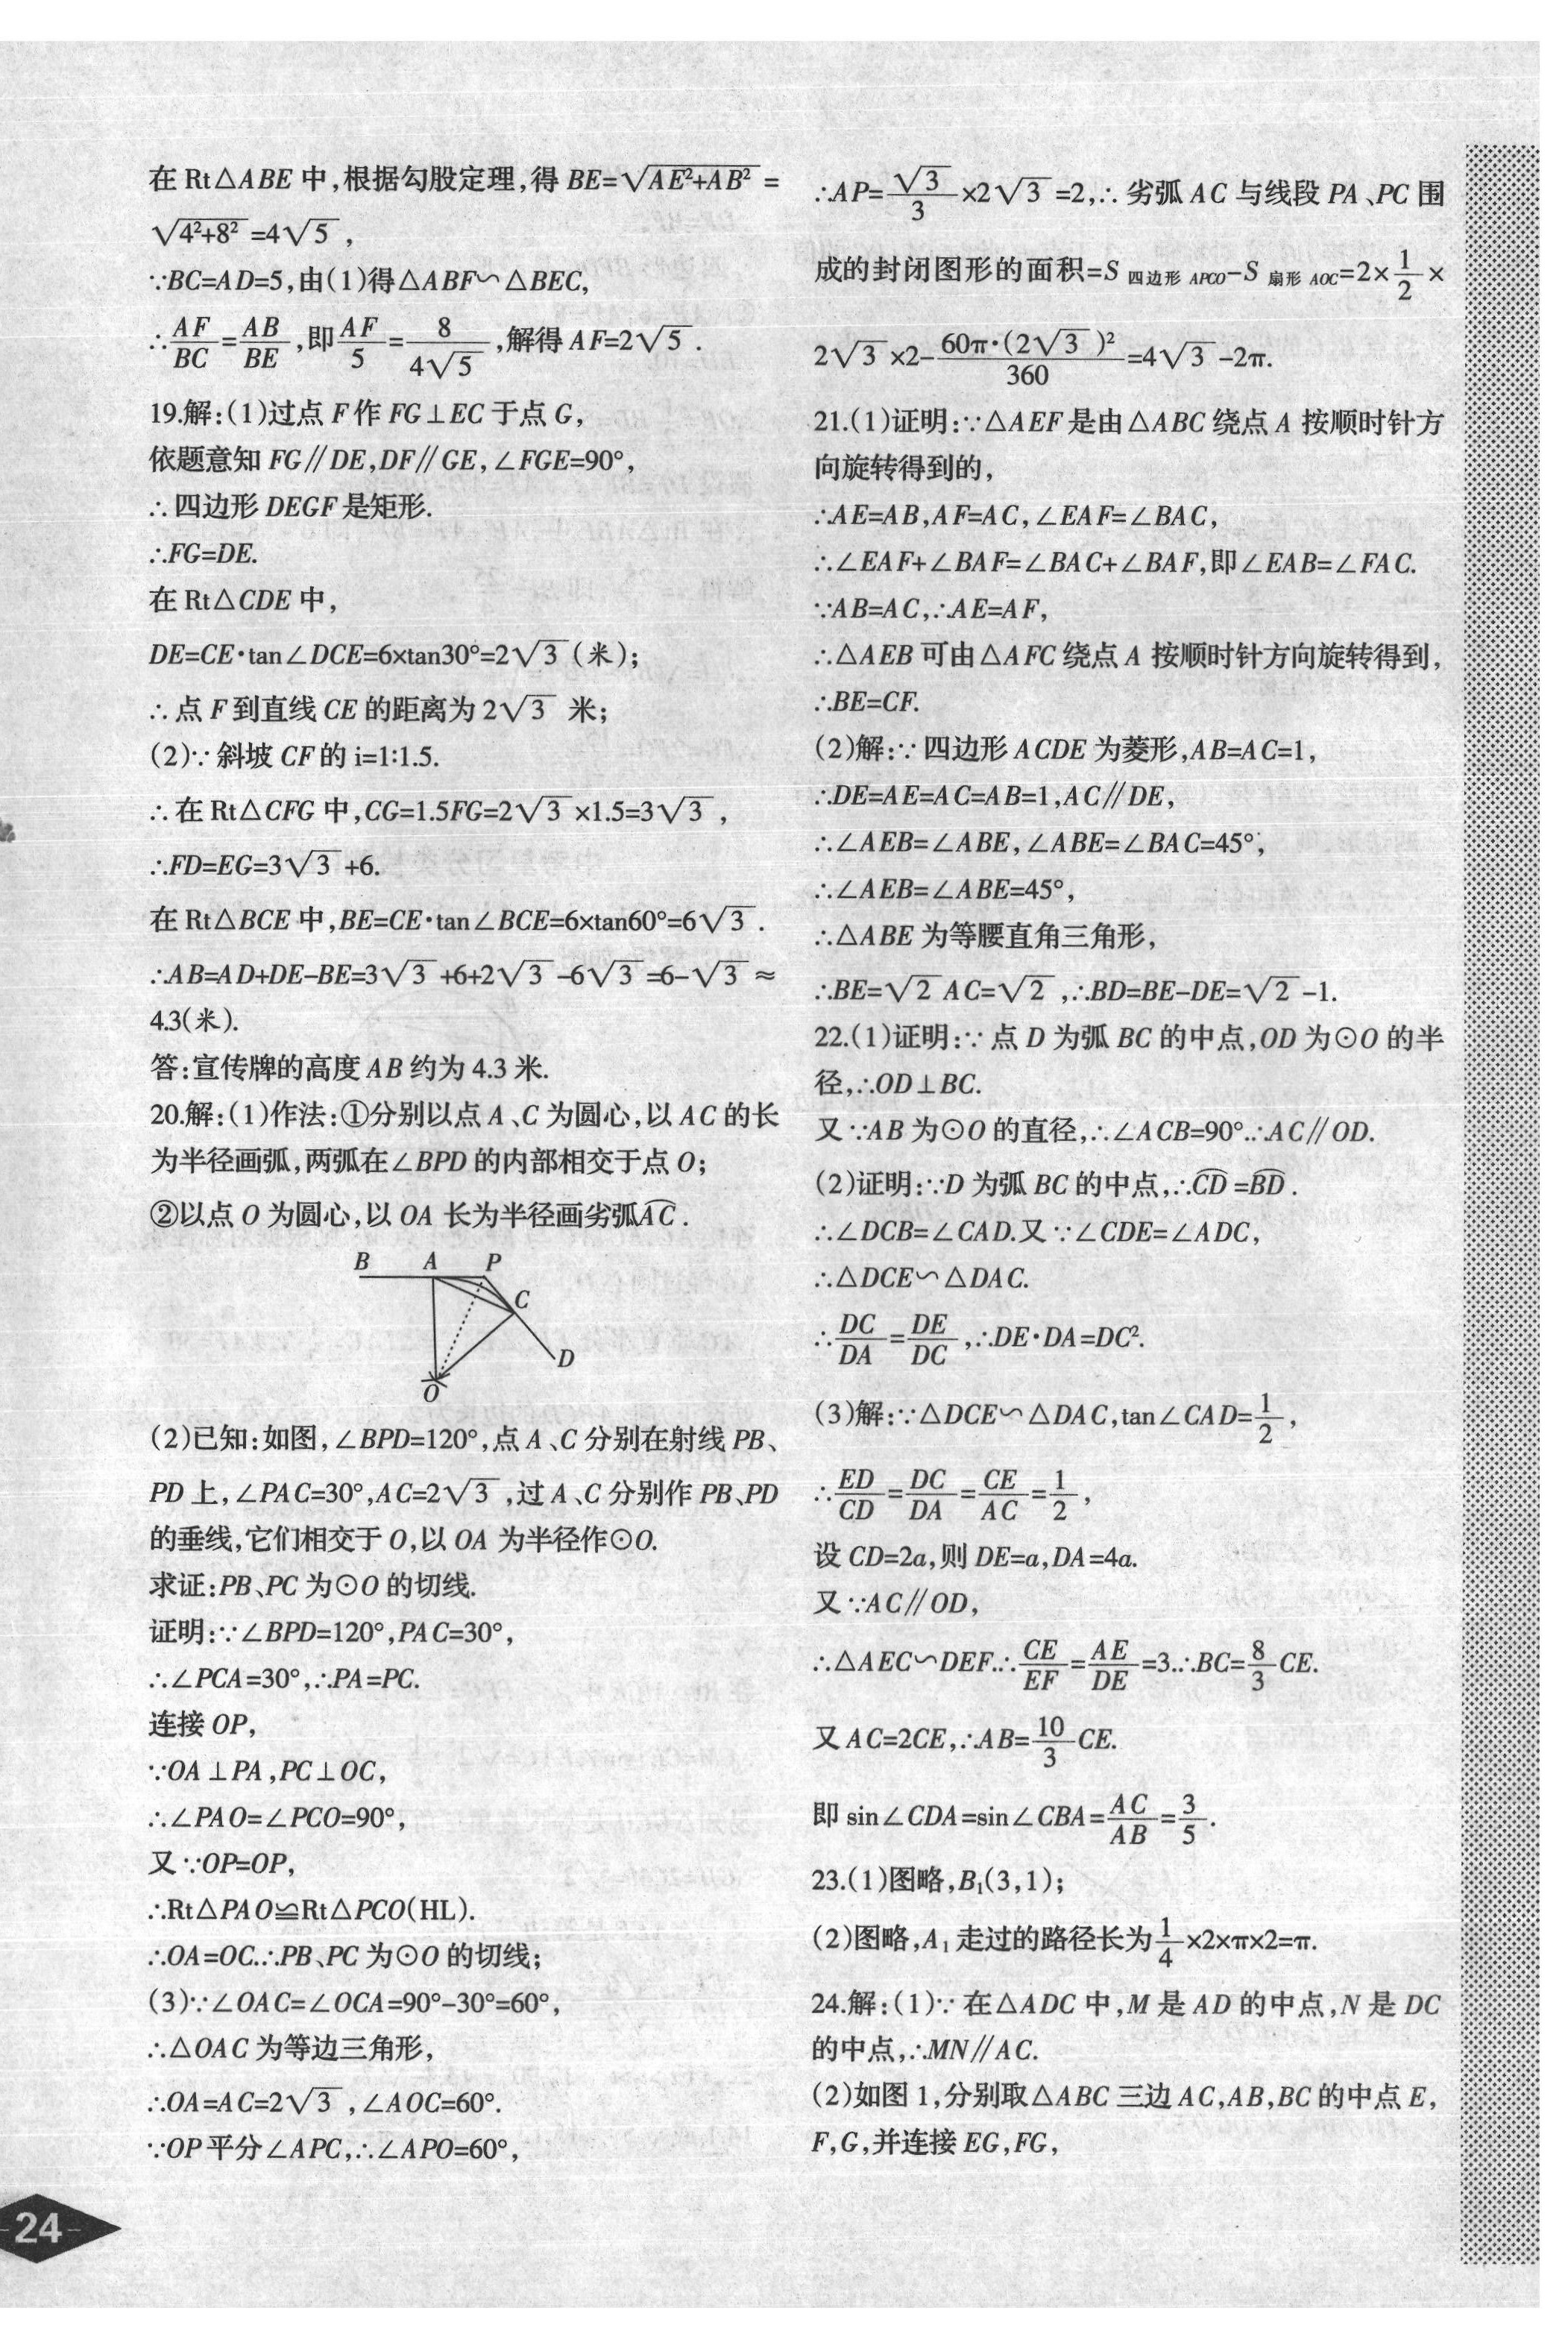 在 Rt△ABE 中,根据勾股定理,得 BE=√(AE²+AB²) =
√(4²+8²) =4√5 ,
∵BC=AD=5,由(1)得△ABF∽△BEC,
∴AF/BC=AB/BE,即AF/5=8/(4√5),解得 AF=2√5 .
19.解:(1)过点 F 作 FG⊥EC 于点 G,
依题意知 FG∥DE,DF∥GE,∠FGE=90°,
∴四边形 DEGF 是矩形.
∴FG=DE.
在 Rt△CDE 中,
DE=CE·tan∠DCE=6×tan30°=2√3 (米);
∴点 F 到直线 CE 的距离为 2√3 米;
(2)∵斜坡 CF 的 i=1:1.5.
∴在 Rt△CFG 中,CG=1.5FG=2√3 ×1.5=3√3 ,
∴FD=EG=3√3 +6.
在 Rt△BCE 中,BE=CE·tan∠BCE=6×tan60°=6√3 .
∴AB=AD+DE-BE=3√3 +6+2√3 -6√3 =6-√3 ≈
4.3(米).
答:宣传牌的高度 AB 约为 4.3 米.
20.解:(1)作法:①分别以点 A、C 为圆心,以 AC 的长
为半径画弧,两弧在∠BPD 的内部相交于点 O;
②以点 O 为圆心,以 OA 长为半径画劣弧A͡C .
B A P
C
D
O
(2)已知:如图,∠BPD=120°,点 A、C 分别在射线 PB、
PD 上,∠PAC=30°,AC=2√3 ,过 A、C 分别作 PB、PD
的垂线,它们相交于 O,以 OA 为半径作⊙O.
求证:PB、PC 为⊙O 的切线.
证明:∵∠BPD=120°,PAC=30°,
∴∠PCA=30°,∴PA=PC.
连接 OP,
∵OA⊥PA,PC⊥OC,
∴∠PAO=∠PCO=90°,
又∵OP=OP,
∴Rt△PAO≌Rt△PCO(HL).
∴OA=OC.∴PB、PC 为⊙O 的切线;
(3)∵∠OAC=∠OCA=90°-30°=60°,
∴△OAC 为等边三角形,
∴OA=AC=2√3 ,∠AOC=60°.
∵OP 平分∠APC,∴∠APO=60°,
24
∴AP=√3/3×2√3 =2,∴劣弧 AC 与线段 PA、PC 围
成的封闭图形的面积=S四边形APCO-S扇形AOC=2×1/2×
2√3 ×2-60π·(2√3)²/360=4√3 -2π.
21.(1)证明:∵△AEF 是由△ABC 绕点 A 按顺时针方
向旋转得到的,
∴AE=AB,AF=AC,∠EAF=∠BAC,
∴∠EAF+∠BAF=∠BAC+∠BAF,即∠EAB=∠FAC.
∵AB=AC,∴AE=AF,
∴△AEB 可由△AFC 绕点 A 按顺时针方向旋转得到,
∴BE=CF.
(2)解:∵四边形 ACDE 为菱形,AB=AC=1,
∴DE=AE=AC=AB=1,AC∥DE,
∴∠AEB=∠ABE,∠ABE=∠BAC=45°,
∴∠AEB=∠ABE=45°,
∴△ABE 为等腰直角三角形,
∴BE=√2 AC=√2 ,∴BD=BE-DE=√2 -1.
22.(1)证明:∵点 D 为弧 BC 的中点,OD 为⊙O 的半
径,∴OD⊥BC.
又∵AB 为⊙O 的直径,∴∠ACB=90°.∴AC∥OD.
(2)证明:∵D 为弧 BC 的中点,∴C͡D =B͡D .
∴∠DCB=∠CAD.又∵∠CDE=∠ADC,
∴△DCE∽△DAC.
∴DC/DA=DE/DC,∴DE·DA=DC².
(3)解:∵△DCE∽△DAC,tan∠CAD=1/2,
∴ED/CD=DC/DA=CE/AC=1/2,
设 CD=2a,则 DE=a,DA=4a.
又∵AC∥OD,
∴△AEC∽DEF.∴CE/EF=AE/DE=3.∴BC=8/3CE.
又 AC=2CE,∴AB=10/3CE.
即 sin∠CDA=sin∠CBA=AC/AB=3/5.
23.(1)图略,B₁(3,1);
(2)图略,A₁ 走过的路径长为1/4×2×π×2=π.
24.解:(1)∵在△ADC 中,M 是 AD 的中点,N 是 DC
的中点,∴MN∥AC.
(2)如图 1,分别取△ABC 三边 AC,AB,BC 的中点 E,
F,G,并连接 EG,FG,